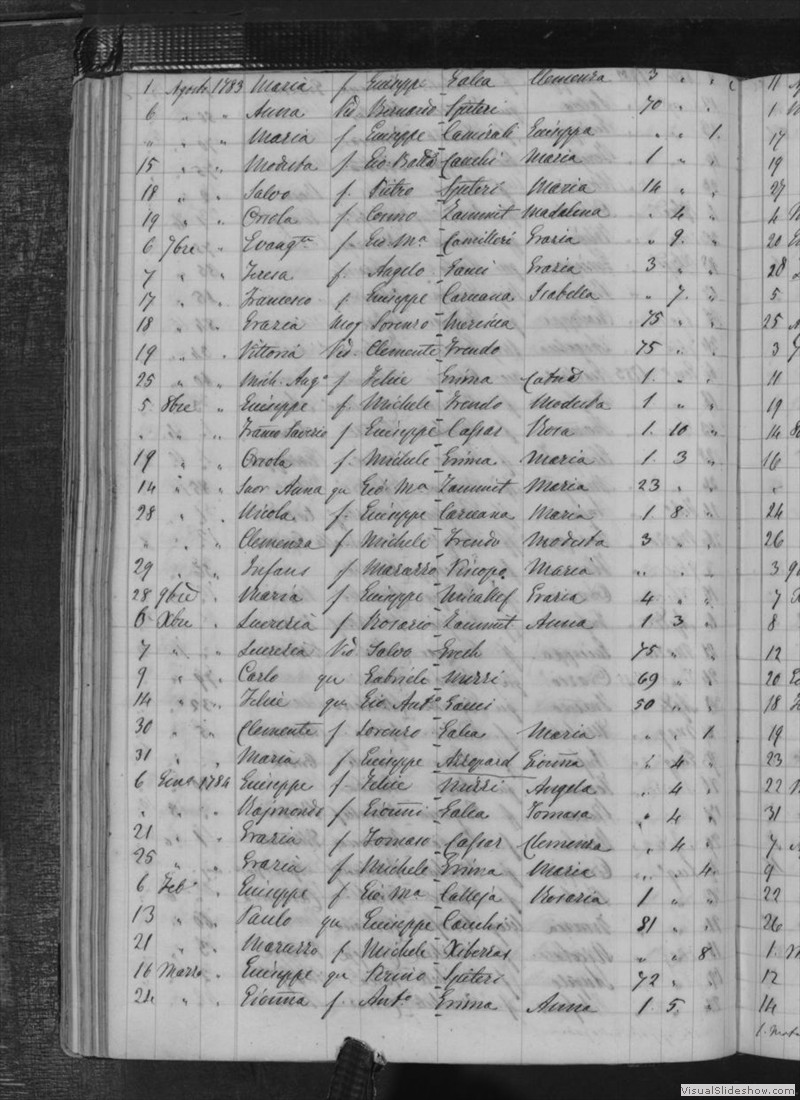 1 Agosto 1783 Maria f Giuseppe Galea Clemenza 3 " "
6 " " Anna Vid Bernardo Spiteri 70 " "
" " " Maria f Giuseppe Camirali Giuseppa " " 1
15 " " Modesta f Gio Batta Cauchi Maria 1 " "
18 " " Salvo f Pietro Spiteri Maria 14 " "
19 " " Orsola f Cosmo Zammit Madalena " 4 "
6 7bre " Evangta f Gio Ma Camilleri Grazia " 9 "
7 " " Teresa f Angelo Gauci Grazia 3 " "
17 " " Francesco f Giuseppe Caruana Isabella " 7 "
18 " " Grazia Mog Lorenzo 75 " "
19 " " Vittoria Vid. Clemente Frendo 75 " "
25 " " Mich. Ango f Felice Grima 1 " "
5 8bre " Giuseppe f Michele Frendo Modesta 1 " "
" " " Franco Saverio f Giuseppe Cassar Rosa 1 10 "
19 " " Orsola f Michele Grima Maria 1 3 "
14 " " Suor Anna qu Gio Ma Zammit Maria 23 " "
28 " " Nicola f Giuseppe Caruana Maria 1 8 "
" " " Clemenza f Michele Frendo Modesta 3 " "
29 " " Infans f Marazzo Piscopo Maria " " "
28 9bre " Maria f Giuseppe Micallef Grazia 4 " "
6 Xbre " Lucrezia f Rosario Zammit Anna 1 3 "
7 " " Lucrezia Vid Salvo Grech 75 " "
9 " " Carlo qu Gabriele Muzzi 69 " "
14 " " Felice qu Gio Anto Gauci 50 " "
30 " " Clemente f Lorenzo Galea Maria " " 1
31 " " Maria f Giuseppe Azzopard Gionna " 4 "
6 Geno 1784 Giuseppe f Felice Muzzi Angela " 4 "
" " " Rajmondo f Gionni Galea Tomasa " 4 "
21 " " Grazia f Tomaso Cassar Clemenza " 4 "
25 " " Grazia f Michele Grima Maria " " 4
6 Febo " Giuseppe f Gio Ma Calleja Rosaria 1 " "
13 " " Paulo qu Giuseppe Cauchi 81 " "
21 " " Marazzo f Michele Xiberras " " 8
16 Marzo " Giuseppe qu Spiteri 72 " "
24 " " Gionna f Anto Grima Anna 1 5 "
11
1
17
19
27
4
20
28
5
25
3
11
19
14
16
"
24
26
3
7
8
12
20
18
19
23
22
31
7
9
22
26
1
12
14
VisualSlideshow.com